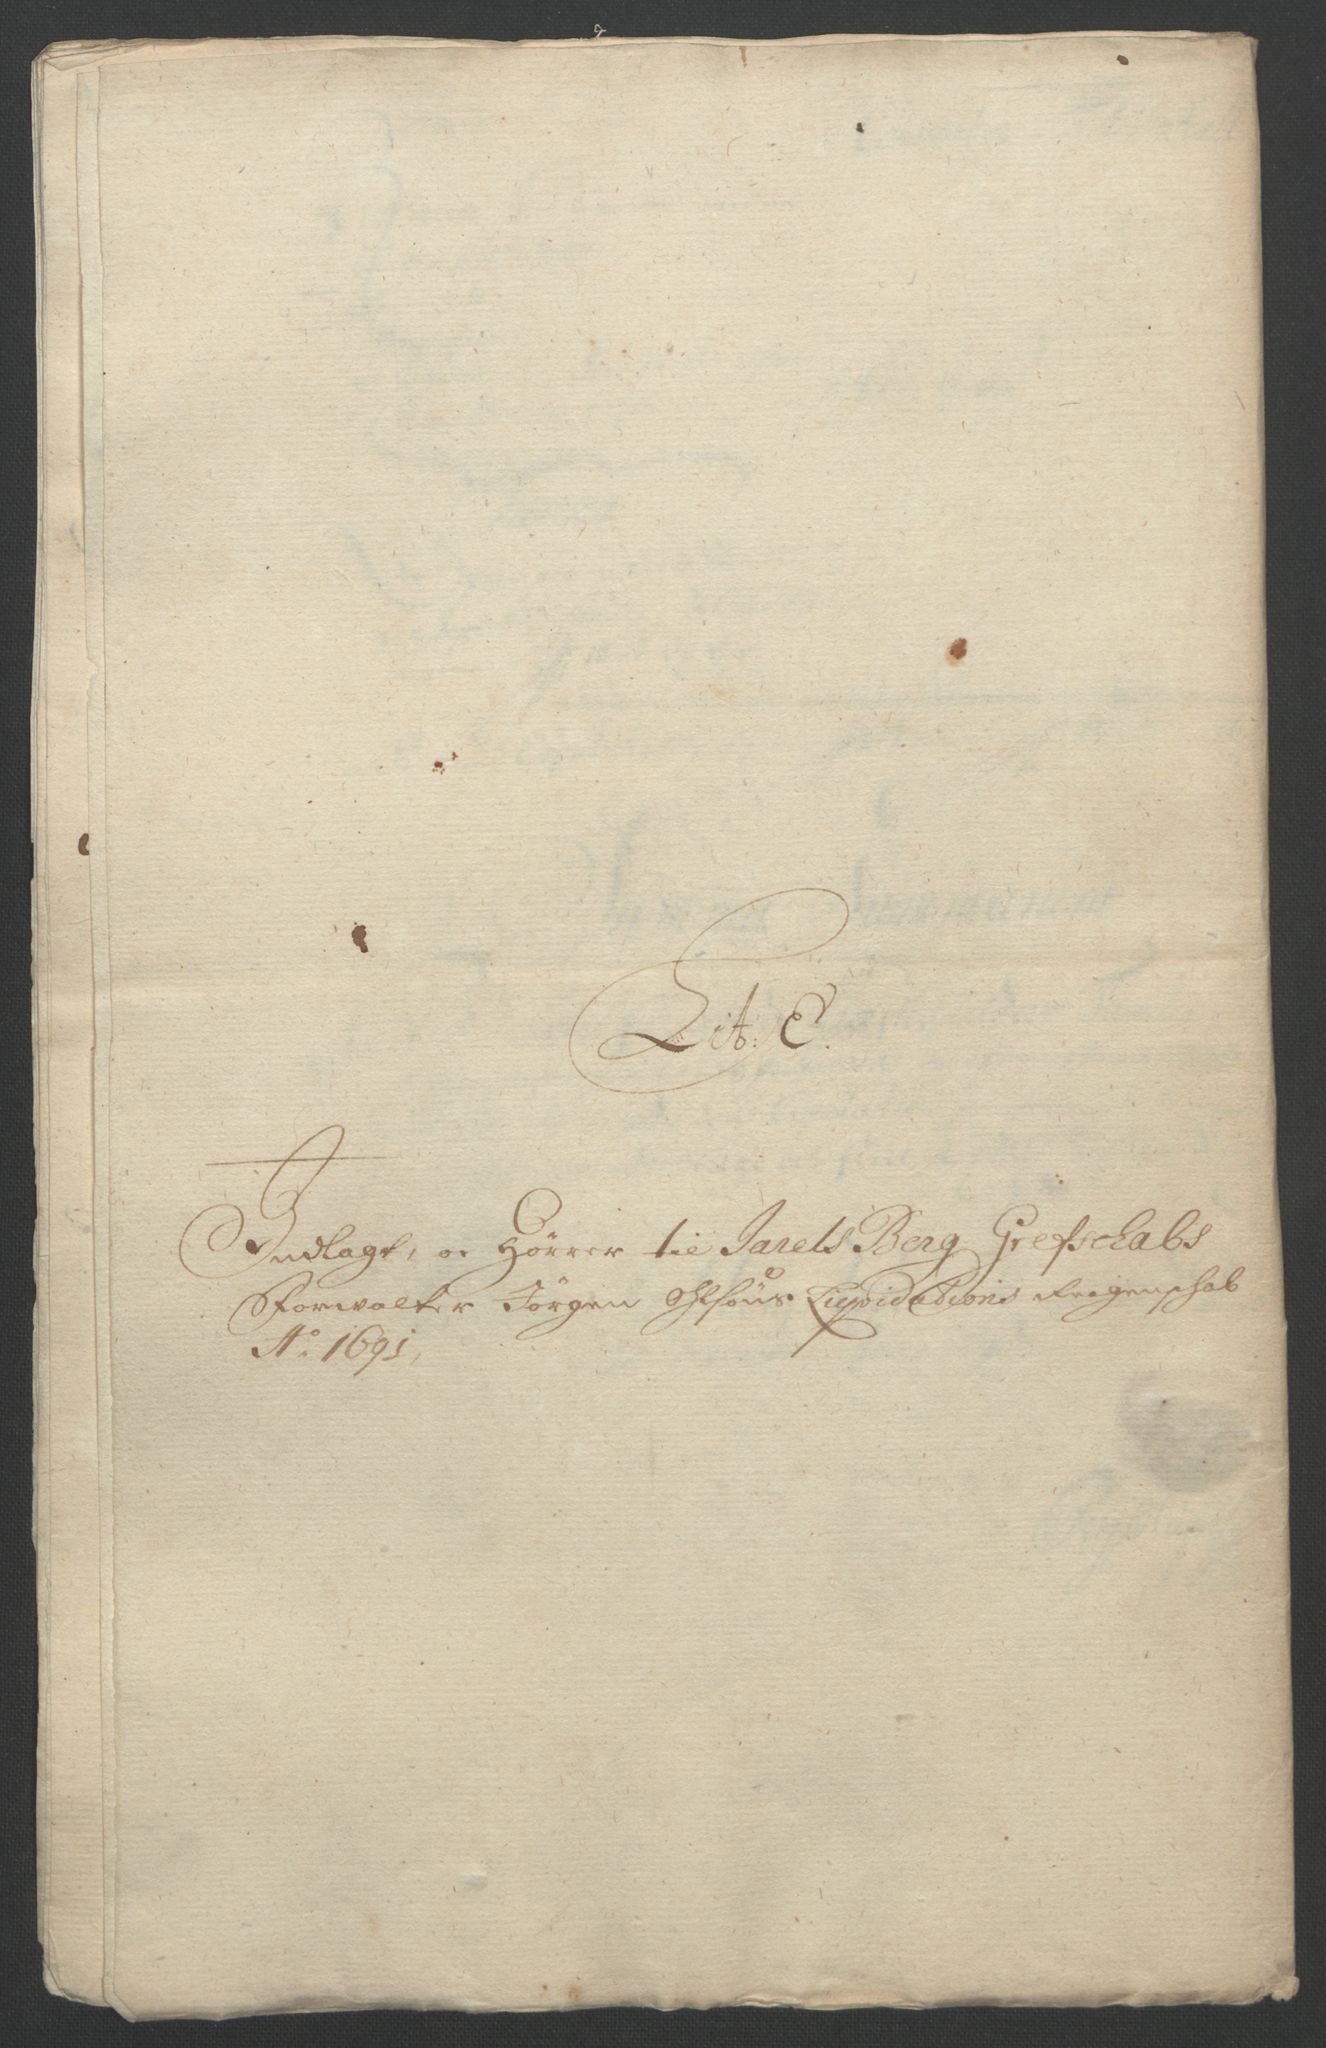 Lit: E.
Indlagt, oc Hörrer til Jarels Berg Grefschabs
Forvalter Jörgen Ohlsöns Liqvidations Reigenschab
Ao 1691,